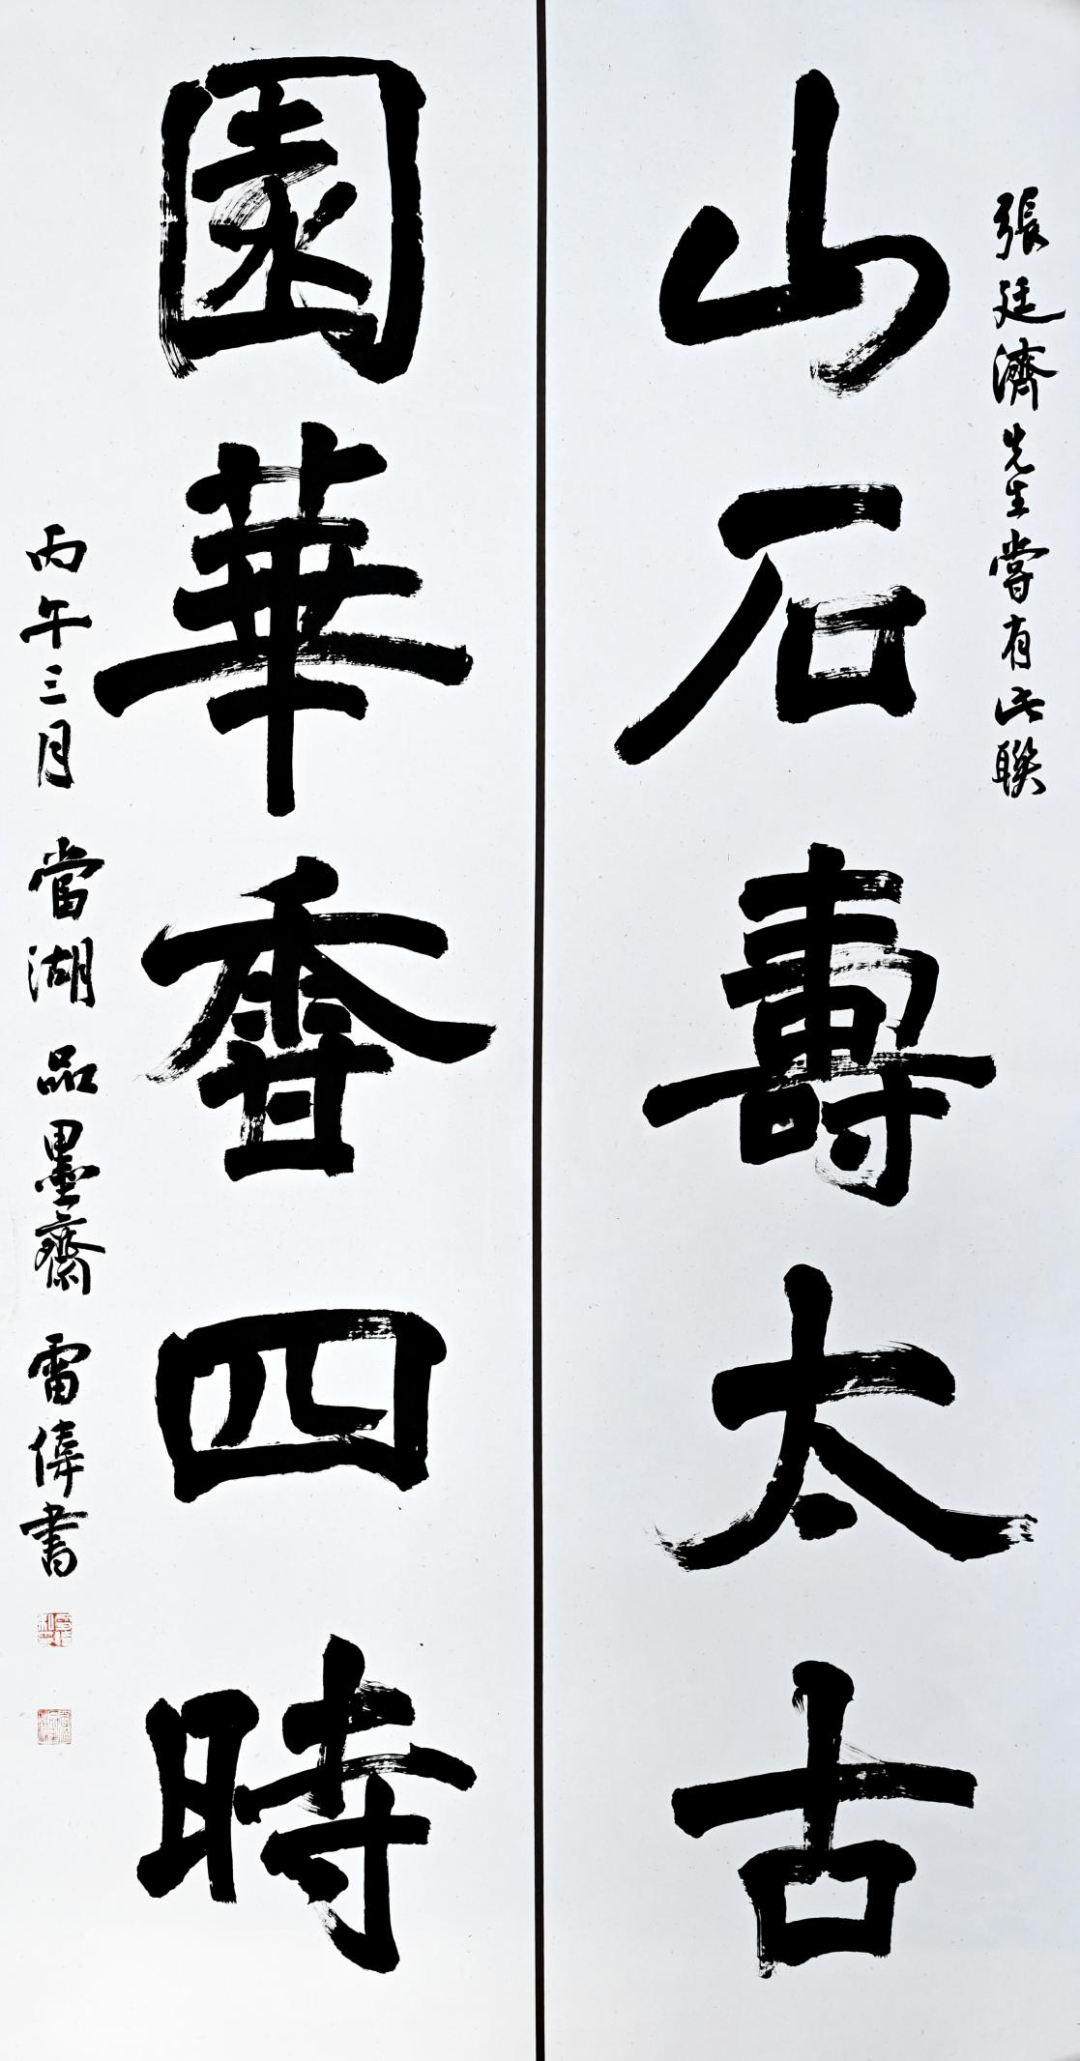 張廷濟先生嘗有此聯
山石壽太古
園華香四時
丙午三月當湖品墨齋雷偉書